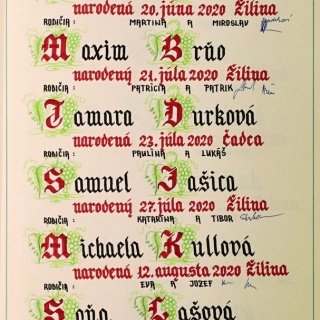 narodená 20. júna 2020 Žilina
RODIČIA : MARTINA A MIROSLAV
Maxim Brňo
narodený 21. júla 2020 Žilina
RODIČIA : PATRÍCIA A PATRIK
Tamara Ďurková
narodená 23. júla 2020 čadca
RODIČIA : PAULÍNA A LUKÁŠ
Samuel Jašica
narodený 27. júla 2020 Žilina
RODIČIA : KATARÍNA A TIBOR
Michaela Kullová
narodená 12. augusta 2020 Žilina
RODIČIA : EVA A JOZEF
Soňa Lašová